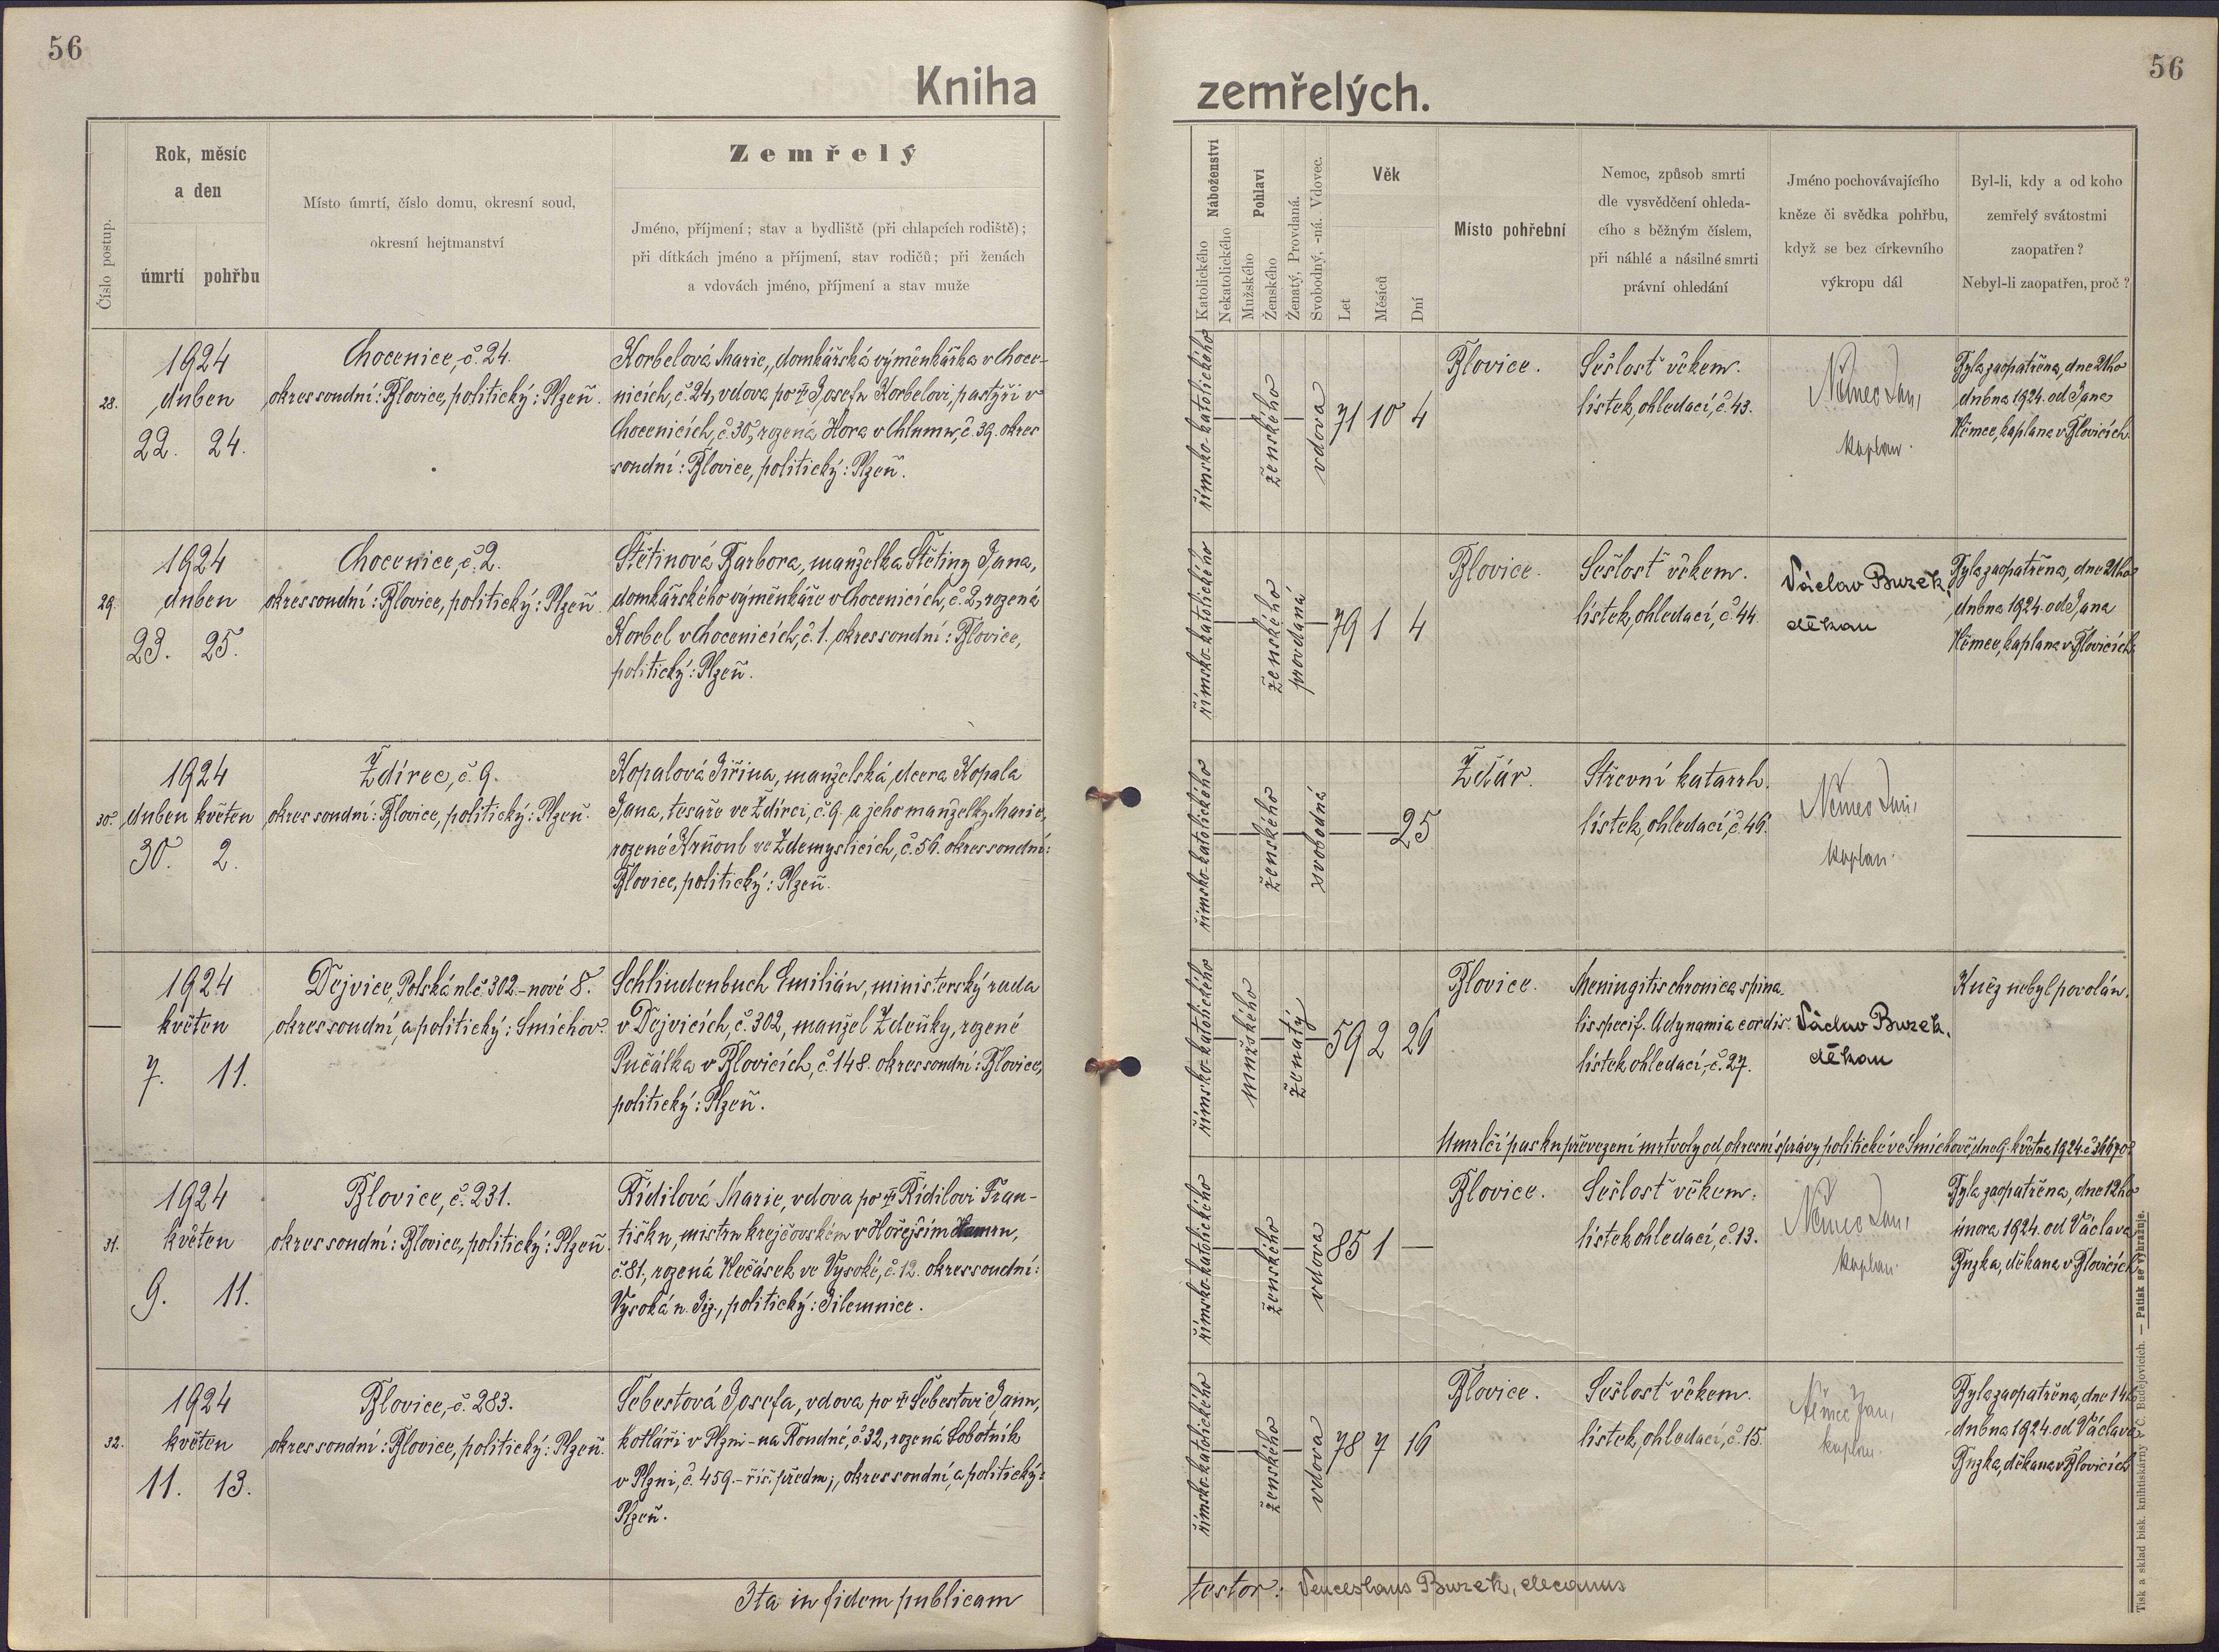 56
Kniha
Číslo postup.
Rok, měsíc
a den
úmrtí
pohřbu
Místo úmrtí, číslo domu, okresní soud,
okresní hejtmanství
Zemřelý
Jméno, příjmení; stav a bydliště (při chlapcích rodiště);
při dítkách jméno a příjmení, stav rodičů; při ženách
a vdovách jméno, příjmení a stav muže
28.
1924
duben
22. 24.
Chocenice, č. 24.
okres soudní: Blovice, politický: Plzeň.
Korbelová Marie, domkářská výměnkářka v Choce-
nicích, č. 24, vdova po † Josefu Korbelovi, pastýři v
Chocenicích, č. 30, rozená Hora v Chlumu, č. 39. okres
soudní: Blovice, politický: Plzeň.
29.
1924
duben
23. 25.
Chocenice, č. 2.
okres soudní: Blovice, politický: Plzeň.
Štětinová Barbora, manželka Štětiny Jana,
domkářského výměnkáře v Chocenicích, č. 2, rozená
Korbel v Chocenicích, č. 1, okres soudní: Blovice,
politický: Plzeň.
30.
1924
duben květen
30. 2.
Ždírec, č. 9.
okres soudní: Blovice, politický: Plzeň.
Kopalová Jiřina, manželská dcera Kopala
Jana, tesaře ve Ždírci, č. 9. a jeho manželky Marie,
rozené Krňoul ve Zdemyslicích, č. 56. okres soudní:
Blovice, politický: Plzeň.
1924
květen
7. 11.
Dejvice, Polská ul. č. 302 – nové 8.
okres soudní a politický: Smíchov.
Schlindenbuch Emilián, ministerský rada
v Dejvicích, č. 302, manžel Zdeňky, rozené
Pučálka v Blovicích, č. 148. okres soudní: Blovice,
politický: Plzeň.
31.
1924
květen
9. 11.
Blovice, č. 231.
okres soudní: Blovice, politický: Plzeň.
Řídilová Marie, vdova po † Řídilovi Fran-
tišku, mistru krejčovském v Hořejším
č. 81, rozená Nečásek ve Vysoké, č. 12. okres soudní:
Vysoká n. Jiz., politický: Jilemnice.
32.
1924
květen
11. 13.
Blovice, č. 283.
okres soudní: Blovice, politický: Plzeň.
Šebestová Josefa, vdova po † Šebestovi Janu,
kotláři v Plzni – na Roudné, č. 32, rozená Sobotník
v Plzni, č. 459. – říš. předm., okres soudní a politický:
Plzeň.
Ita in fidem publicam
56
zemřelých.
Náboženství
Katolického
Nekatolického
Pohlaví
Mužského
Ženského
Ženatý, Provdaná.
Svobodný, -ná. Vdovec.
Věk
Let
Měsíců
Dní
Místo pohřební
Nemoc, způsob smrti
dle vysvědčení ohleda-
cího s běžným číslem,
při náhlé a násilné smrti
právní ohledání
Jméno pochovávajícího
kněze či svědka pohřbu,
když se bez církevního
výkropu dál
Byl-li, kdy a od koho
zemřelý svátostmi
zaopatřen?
Nebyl-li zaopatřen, proč?
římsko-katolického
ženského
vdova
71 10 4
Blovice.
Sešlost věkem.
lístek ohledací, č. 43.
Němec Jan,
kaplan.
Byla zaopatřena, dne 21ho
dubna 1924. od Jana
Němce, kaplana v Blovicích.
římsko-katolického
ženského
provdaná
79 1 4
Blovice.
Sešlost věkem.
lístek ohledací, č. 44.
Václav Buzek,
děkan
Byla zaopatřena, dne 21ho
dubna 1924. od Jana
Němce, kaplana v Blovicích.
římsko-katolického
ženského
svobodná
25
Žďár.
Střevní katarrh.
lístek ohledací, č. 46.
Němec Jan,
kaplan.
římsko-katolického
mužského
ženatý
59 2 26
Blovice.
Meningitis chronica spina-
lis specif. Adynamia cordis.
lístek ohledací, č. 27.
Václav Buzek,
děkan
Kněz nebyl povolán.
Umrlčí pas ku převezení mrtvoly od okresní správy politické ve Smíchově, dne 9. května 1924.
římsko-katolického
ženského
vdova
85 1 —
Blovice.
Sešlost věkem.
lístek ohledací, č. 13.
Němec Jan,
kaplan.
Byla zaopatřena, dne 12ho
února 1924. od Václava
Buzka, děkana v Blovicích
římsko-katolického
ženského
vdova
78 7 16
Blovice.
Sešlost věkem.
lístek ohledací, č. 15.
Němec Jan,
kaplan.
Byla zaopatřena, dne 14ho
dubna 1924. od Václava
Buzka, děkana v Blovicích
testor: Venceslaus Buzek, decanus
Tisk a sklad bisk. knihtiskárny v Č. Budějovicích. — Patisk se vyhražuje.